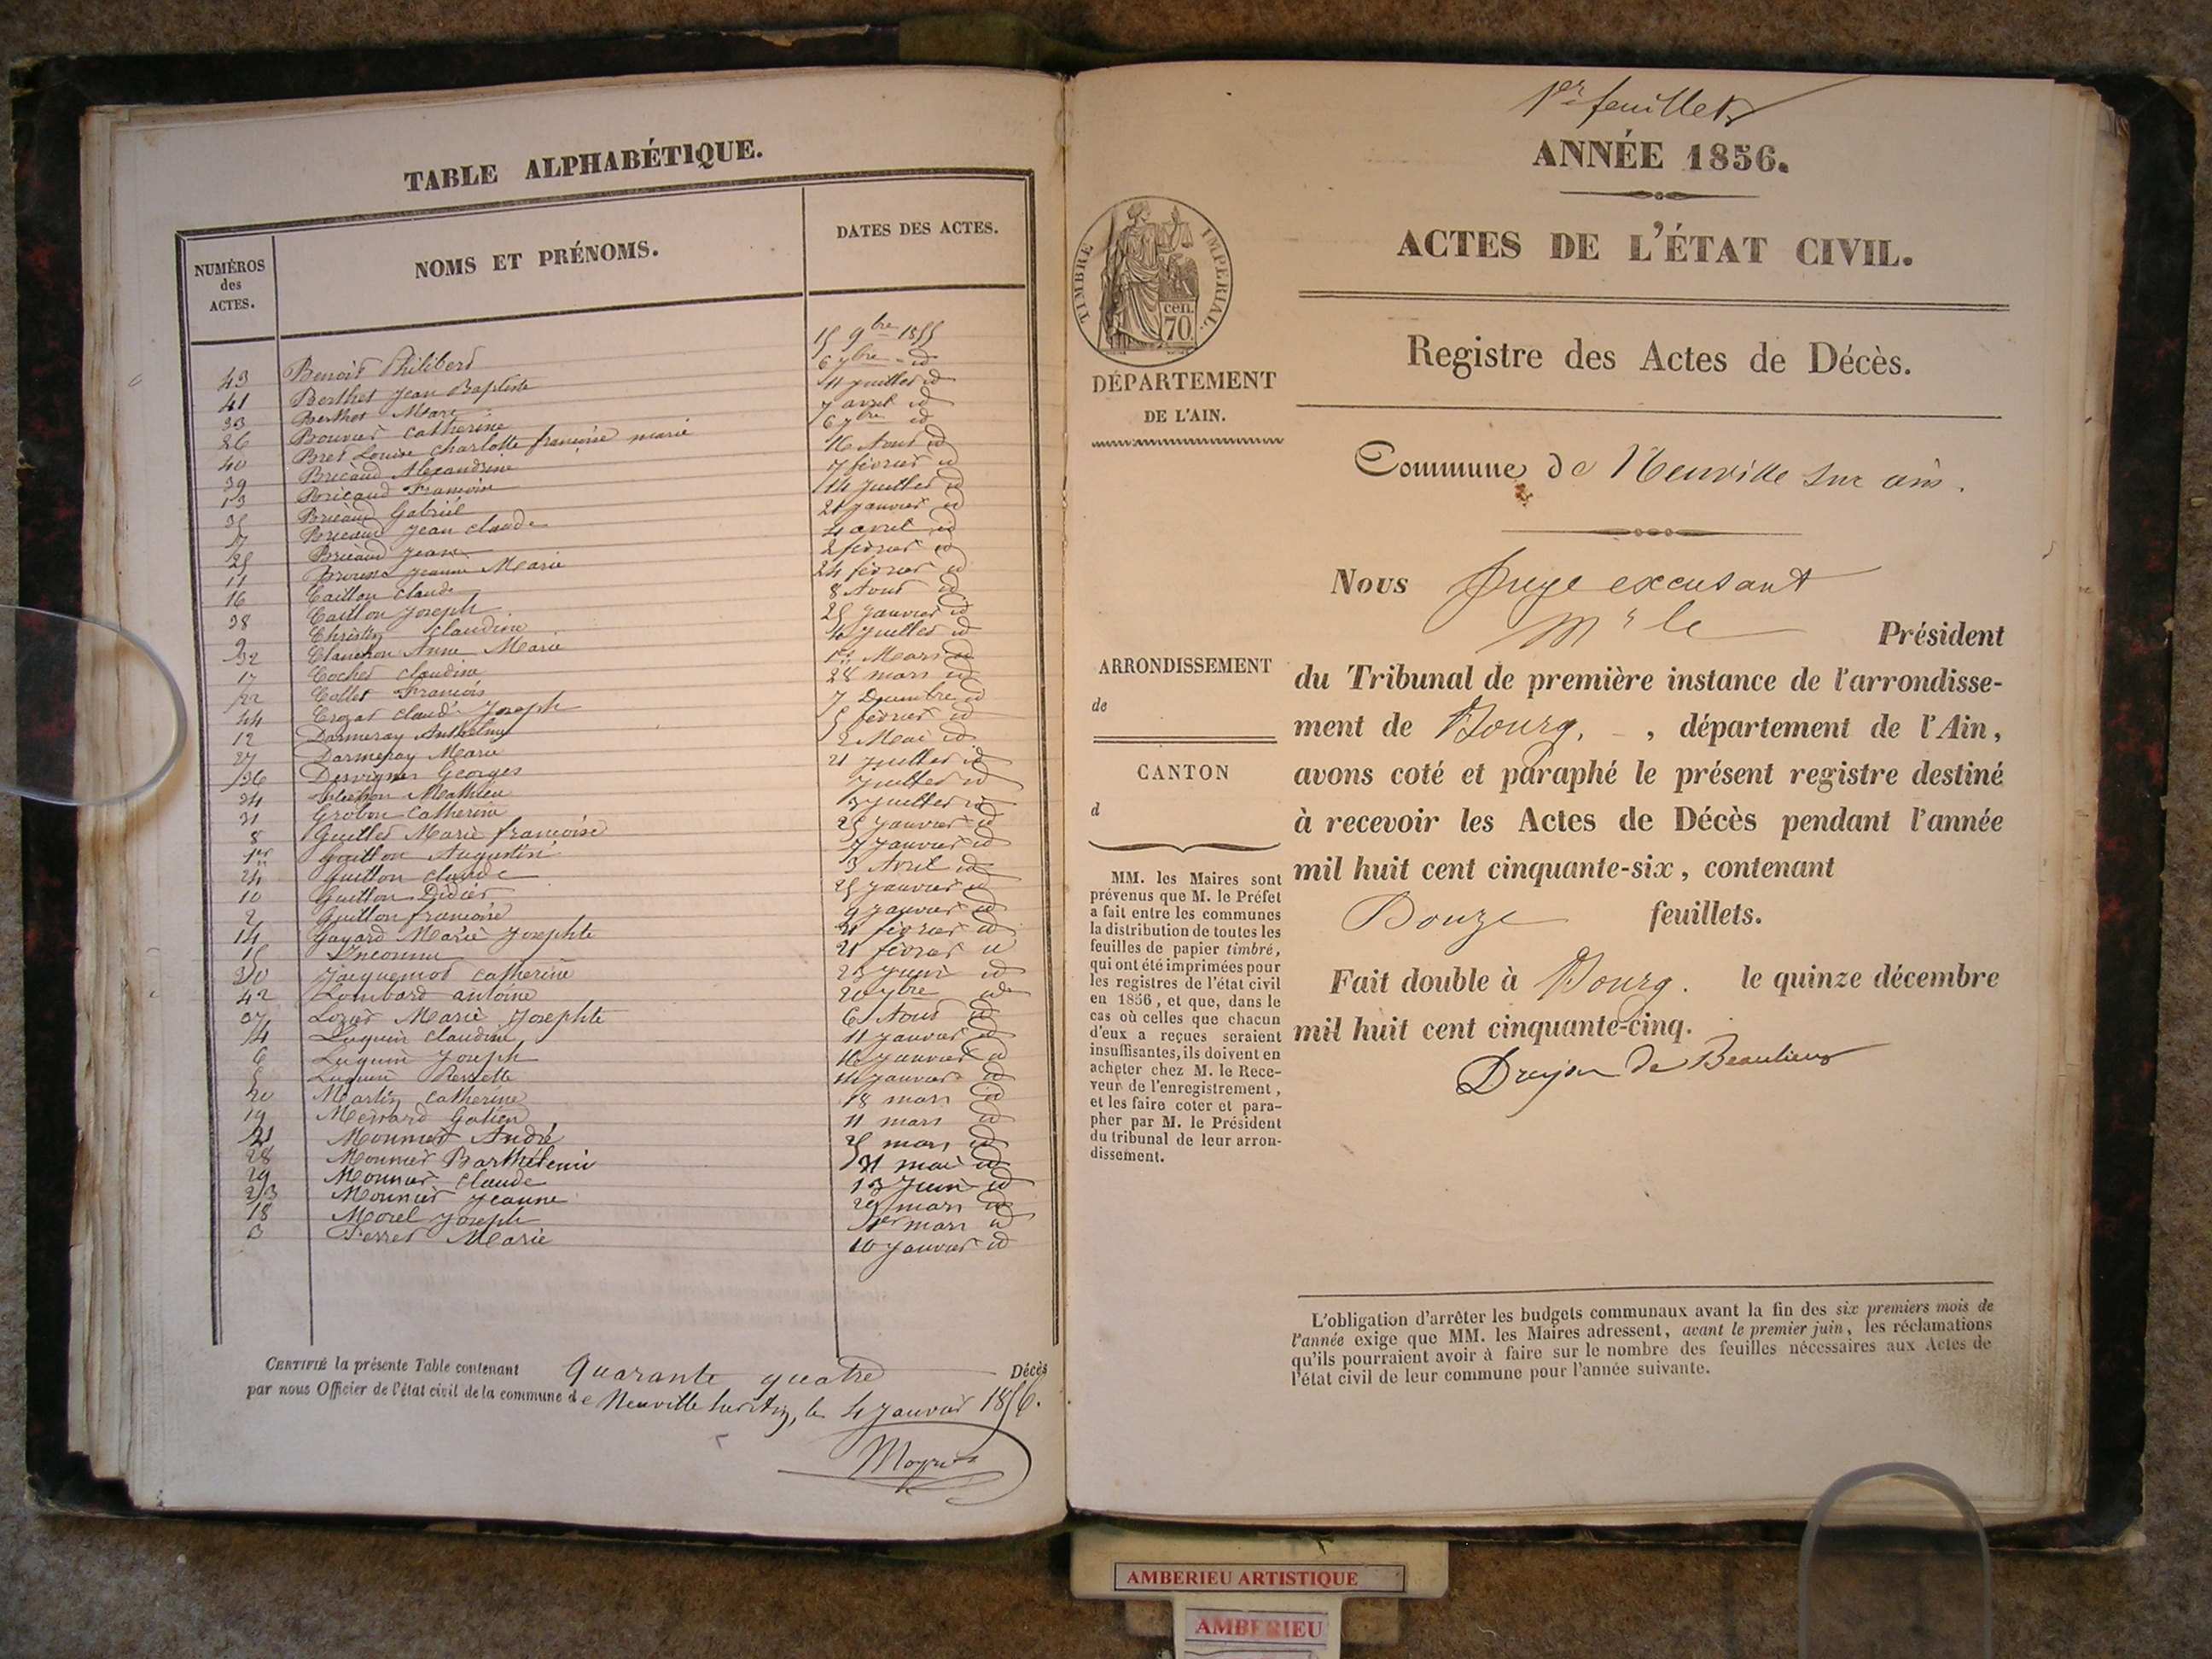 TABLE ALPHABÉTIQUE.
NUMÉROS
des
ACTES.
NOMS ET PRÉNOMS.
DATES DES ACTES.
43 Benoit Philibert 15 9bre 1855
41 Berthet Jean Baptiste 6 7bre id
33 Berthet Marc 11 juillet id
26 Bouvier Catherine 7 avril id
40 Bret Louise Charlotte françoise marie 6 7bre id
39 Bricaud Alexandrine 16 Aout id
13 Bricaud Francoise 7 février id
35 Bricaud Gabriel 14 Juillet id
7 Bricaud Jean claude 21 janvier id
25 Bricaud Jean 4 avril id
11 Jeanne Marie 2 février id
16 Caillon Claude 24 février id
38 Caillon Joseph 8 Aout id
9 Christin Claudine 25 Janvier id
32 Clanchon Anne Marie 4 Juillet id
17 Cochet Claudine 1er Mars id
22 Collet François 28 mars id
44 Crozat Claude Joseph 7 Décembre id
12 Darmeray Anthelme 5 février id
27 Darmeray Marie 2 Mai id
36 Desvignes Georges 21 juillet id
34 Mathieu juillet id
31 Grobon Catherine 3 juillet id
8 Guillet Marie françoise 25 janvier id
1er Guillon Augustine 7 janvier id
24 Guillon Claude 3 Avril id
10 Guillon Didier 25 janvier id
2 Guillon françoise 9 janvier id
14 Gayard Marie Josephte 21 février id
15 Inconnu 21 février id
30 Jacquemot Catherine 23 Juin id
42 Lombard antoine 20 7bre id
37 Marie Josephte 6 Aout id
4 Luquin Claudine 11 janvier id
6 Luquin Joseph 16 janvier id
5 Luquin Pierrette 14 janvier id
20 Martin Catherine 18 mars id
19 Galien 11 mars id
21 Monnier André 25 mars id
28 Monnier Barthélemi 31 mai id
29 Monnier Claude 13 Juin id
23 Monnier Jeanne 29 mars id
18 Morel Joseph 1er mars id
3 Perret Marie 10 Janvier id
CERTIFIÉ la présente Table contenant quarante quatre Décès
par nous Officier de l'état civil de la commune de Neuville sur Ain, le 4 Janvier 1856.
1er feuillet
ANNÉE 1856.
ACTES DE L'ÉTAT CIVIL.
Registre des Actes de Décès.
TIMBRE IMPÉRIAL.
cen.
70
DÉPARTEMENT
DE L'AIN.
Commune de Neuville sur ain.
Nous Juge excusant
Mr le Président
du Tribunal de première instance de l'arrondisse-
ment de Bourg, département de l'Ain,
avons coté et paraphé le présent registre destiné
à recevoir les Actes de Décès pendant l'année
mil huit cent cinquante-six, contenant
Douze feuillets.
Fait double à Bourg. le quinze décembre
mil huit cent cinquante-cinq.
Dreyon de Beaulieu
ARRONDISSEMENT
de
CANTON
d
MM. les Maires sont
prévenus que M. le Préfet
a fait entre les communes
la distribution de toutes les
feuilles de papier timbré,
qui ont été imprimées pour
les registres de l'état civil
en 1856, et que, dans le
cas où celles que chacun
d'eux a reçues seraient
insuffisantes, ils doivent en
acheter chez M. le Rece-
veur de l'enregistrement,
et les faire coter et para-
pher par M. le Président
du tribunal de leur arron-
dissement.
L'obligation d'arrêter les budgets communaux avant la fin des six premiers mois de
l'année exige que MM. les Maires adressent, avant le premier juin, les réclamations
qu'ils pourraient avoir à faire sur le nombre des feuilles nécessaires aux Actes de
l'état civil de leur commune pour l'année suivante.
AMBERIEU ARTISTIQUE
AMBERIEU